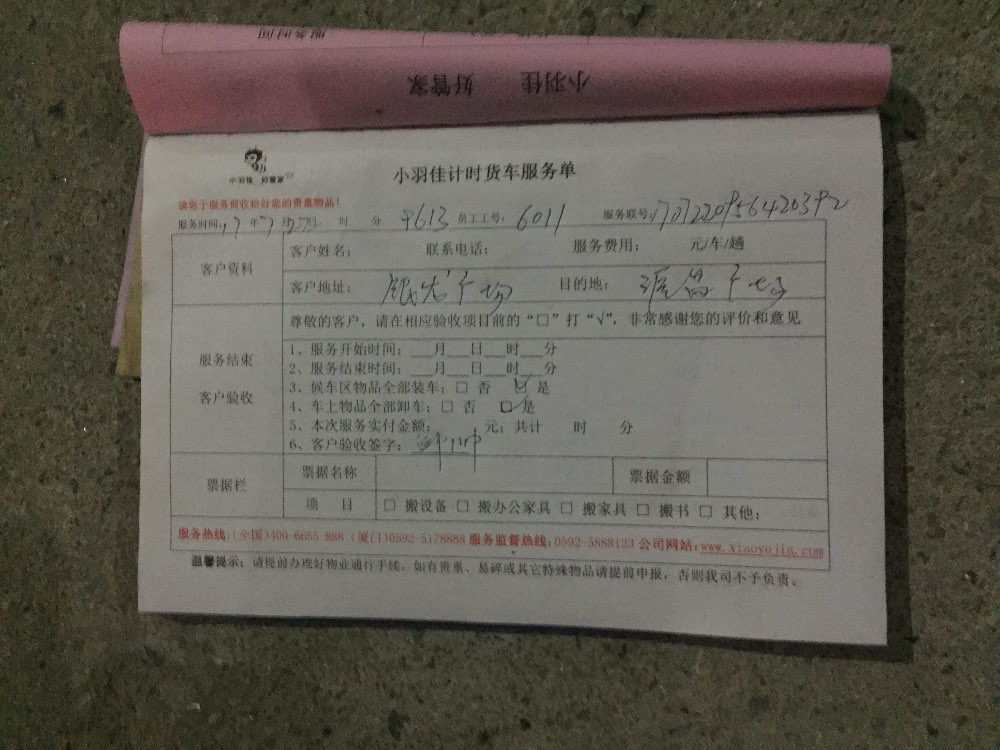 服务时间
小羽佳 好管家
小羽佳 好管家
小羽佳计时货车服务单
请您于服务前收拾好您的贵重物品!
服务时间: 17 年 7 月 22 日 时 分 员工工号: 6011 服务联号:
客户资料
客户姓名: 联系电话: 服务费用: 元/车/趟
客户地址: 银龙广场 目的地: 广场
尊敬的客户,请在相应验收项目前的“□”打“√”,非常感谢您的评价和意见
服务结束
客户验收
1、服务开始时间:___月___日___时___分
2、服务结束时间:___月___日___时___分
3、候车区物品全部装车: □ 否 ☑ 是
4、车上物品全部卸车: □ 否 ☑ 是
5、本次服务实付金额: 元; 共计 时 分
6、客户验收签字:
票据栏
票据名称 票据金额
项 目 □ 搬设备 □ 搬办公家具 □ 搬家具 □ 搬书 □ 其他:
服务热线:(全国)400-6655-888 (厦门)0592-5178888 服务监督热线:0592-5883123 公司网站:www.xiaoyujia.com
温馨提示: 请提前办理好物业通行手续,如有贵重、易碎或其它特殊物品请提前申报,否则我司不予负责。